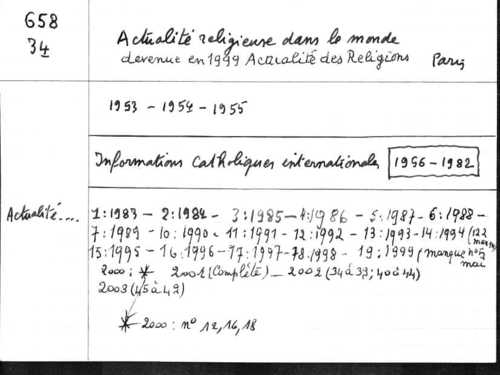 658
34
Actualité religieuse dans le monde
devenue en 1999 Actualité des Religions Paris
1953 - 1954 - 1955
Informations Catholiques internationales 1956-1982
Actualité....
1:1983 - 2:1984 - 3:1985 - 4:1986 - 5:1987 - 6:1988 -
7:1989 - 10:1990 - 11:1991 - 12:1992 - 13:1993 - 14:1994 (122
15:1995 - 16:1996 - 17:1997 - 18:1998 - 19:1999 (manque n°5 mai
2000: * 2001 (Complète) - 2002 (34 à 39; 40 à 44)
2003 (45 à 49)
* 2000: n° 12, 16, 18